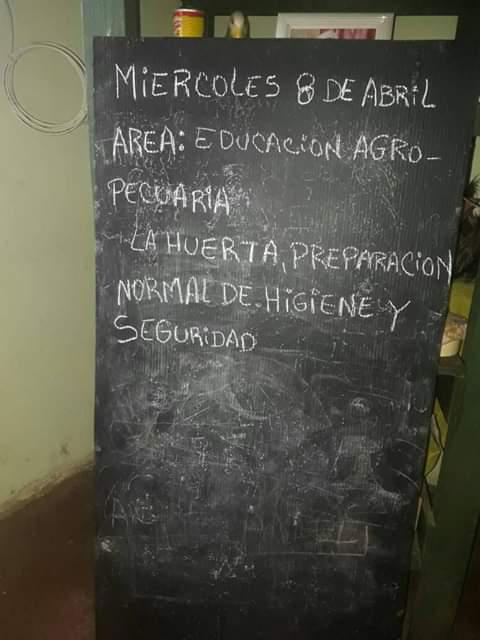 MIERCOLES 8 DE ABRIL
AREA: EDUCACION AGRO-
PECUARIA
- LA HUERTA, PREPARACION
NORMAL DE HIGIENE Y
SEGURIDAD